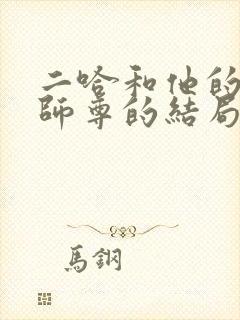 二哈和他的
師尊的結局
馬鋼